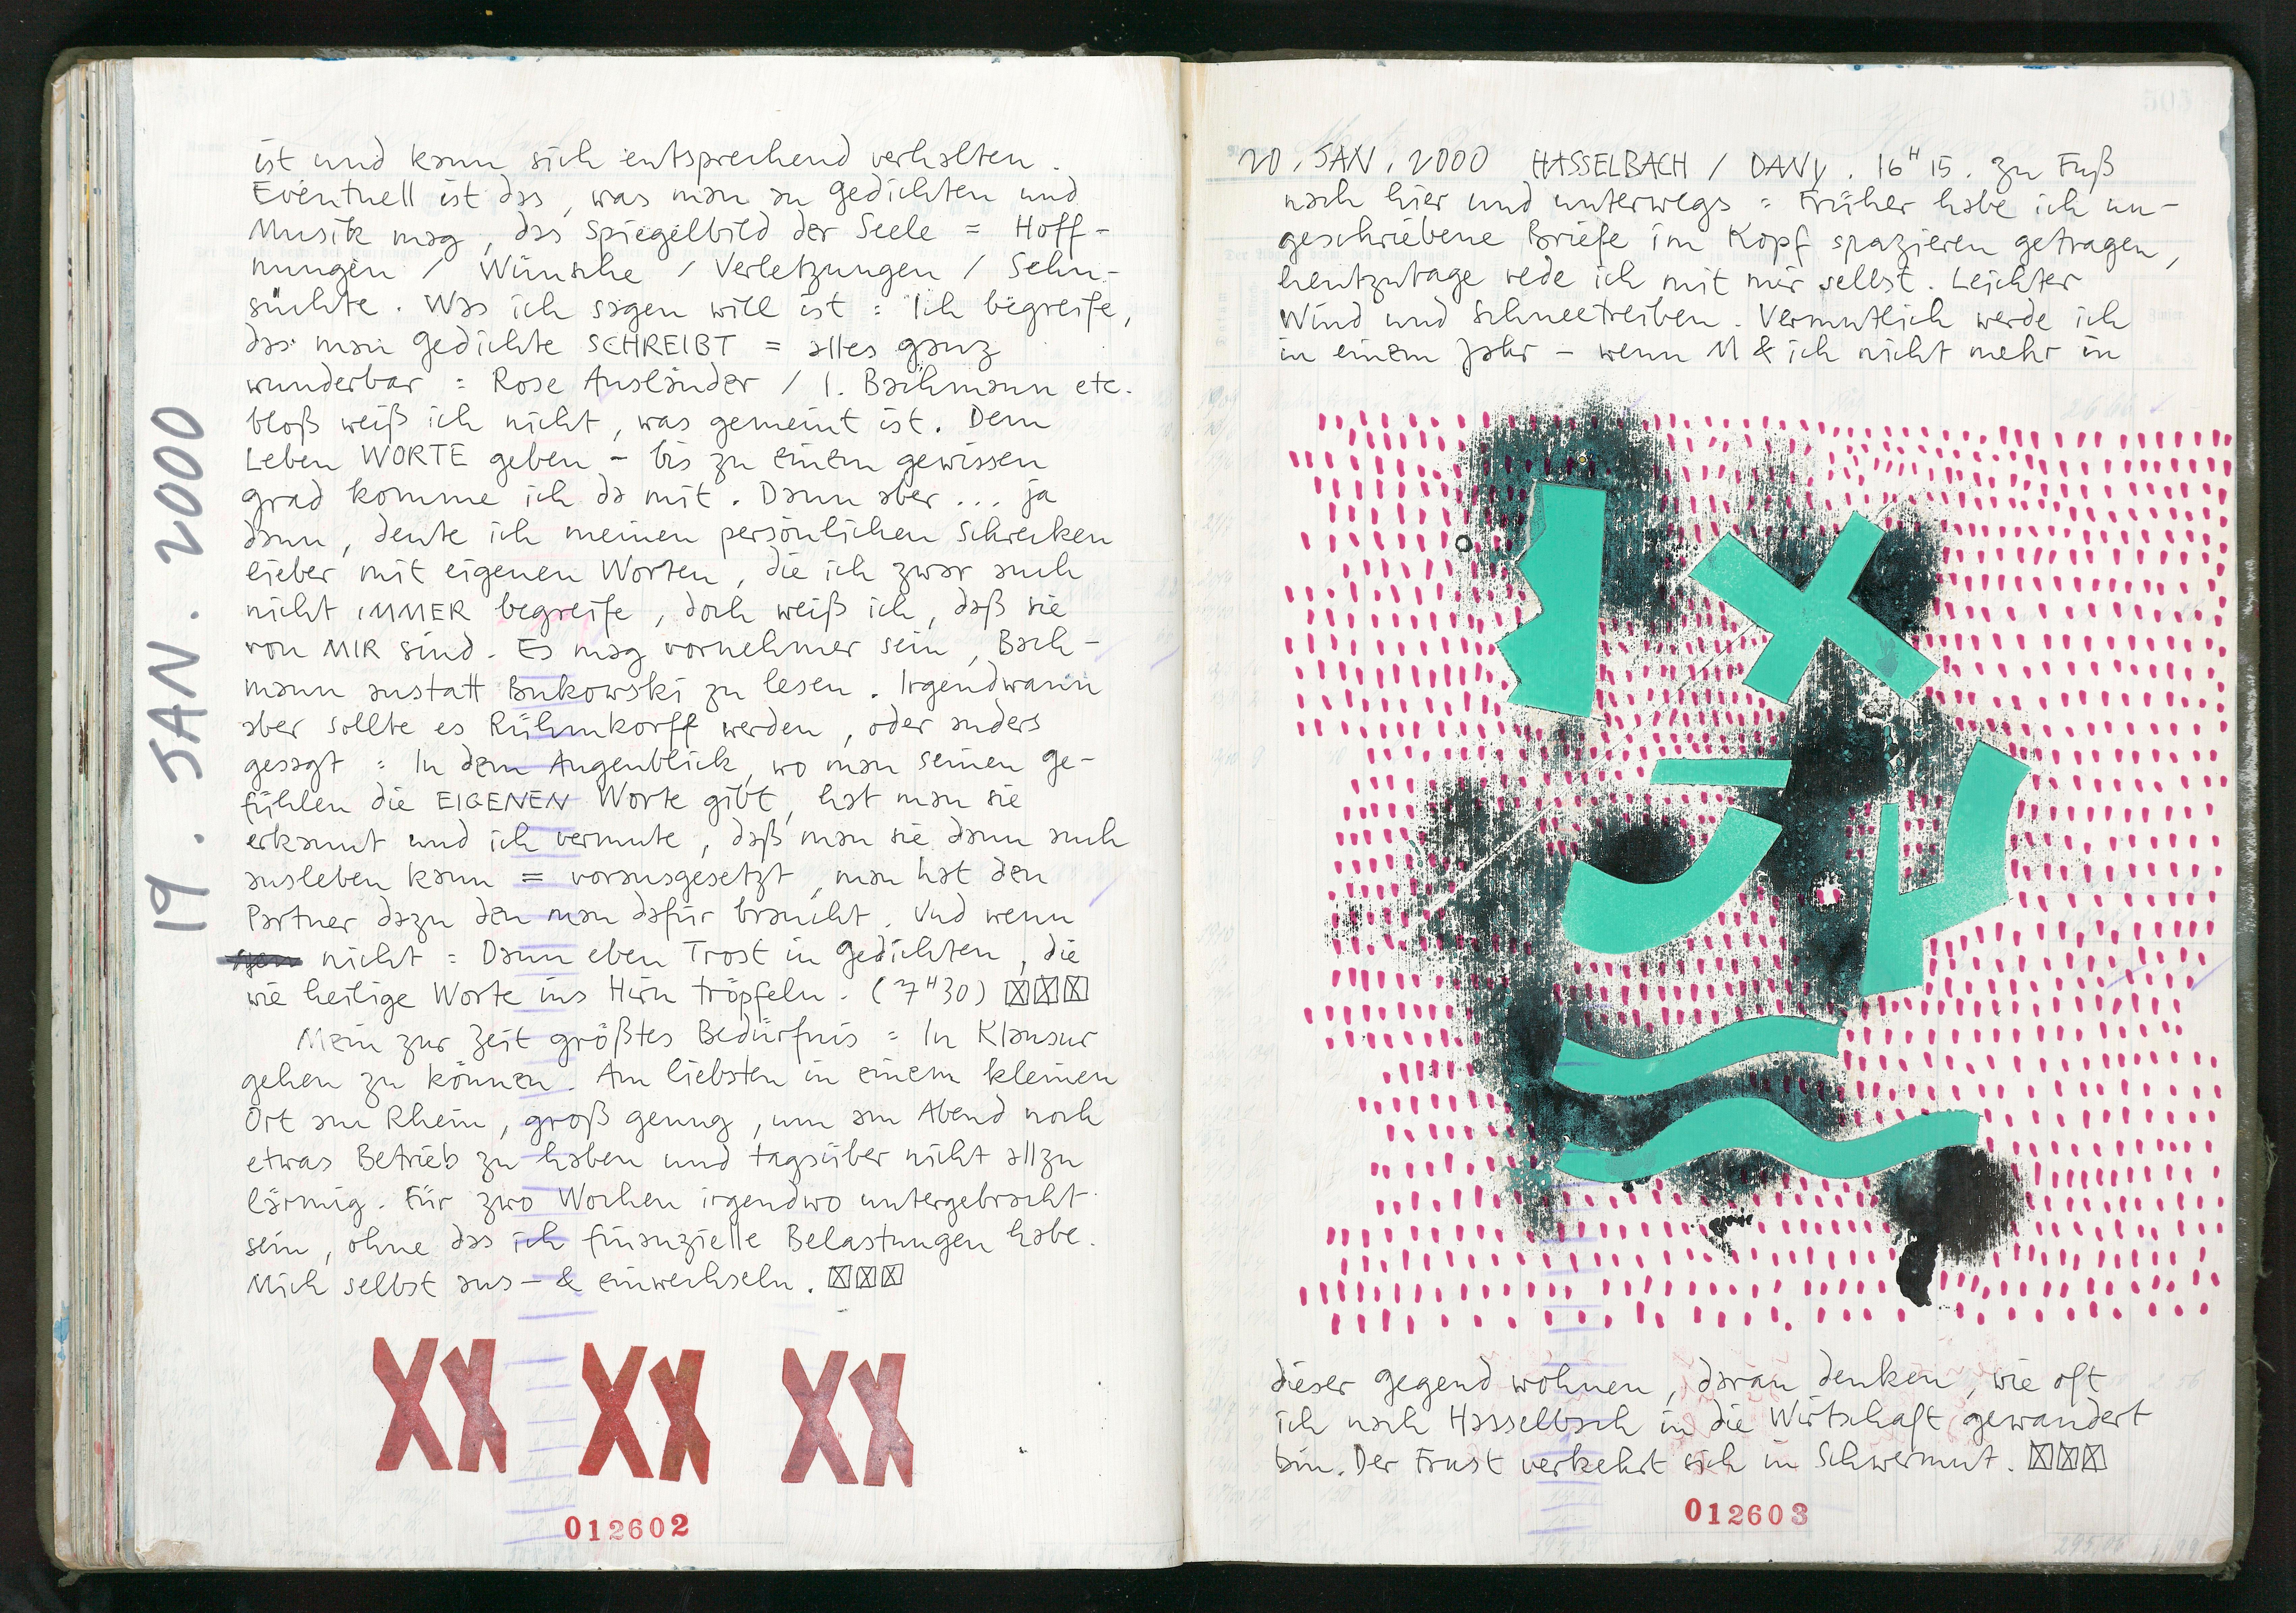 19. JAN. 2000
ist und kann sich entsprechend verhalten.
Eventuell ist das, was man an Gedichten und
Musik mag, das Spiegelbild der Seele = Hoff-
nungen / Wünsche / Verletzungen / Sehn-
süchte. Was ich sagen will ist : Ich begreife,
das man Gedichte SCHREIBT = alles ganz
wunderbar : Rose Ausländer / I. Bachmann etc.
bloß weiß ich nicht, was gemeint ist. Dem
Leben WORTE geben - bis zu einem gewissen
Grad komme ich da mit. Dann aber ... ja
dann, deute ich meinen persönlichen Schrecken
lieber mit eigenen Worten, die ich zwar auch
nicht IMMER begreife, doch weiß ich, daß sie
von MIR sind. Es mag vornehmer sein, Bach-
mann anstatt Bukowski zu lesen. Irgendwann
aber sollte es Rühmkorff werden, oder anders
gesagt : In dem Augenblick, wo man seinen Ge-
fühlen die EIGENEN Worte gibt, hat man sie
erkannt und ich vermute, daß man sie dann auch
ausleben kann = vorausgesetzt, man hat den
Partner dazu den man dafür braucht. Und wenn
nicht : Dann eben Trost in Gedichten, die
wie heilige Worte ins Hirn tröpfeln. (7H30)
Mein zur Zeit größtes Bedürfnis : In Klausur
gehen zu können. Am liebsten in einem kleinen
Ort am Rhein, groß genug, um am Abend noch
etwas Betrieb zu haben und tagsüber nicht allzu
lärmig. Für zwo Wochen irgendwo untergebracht
sein, ohne das ich finanzielle Belastungen habe.
Mich selbst aus- & einwechseln.
XX XX XX
012602
20. JAN. 2000 HASSELBACH / DANY. 16H15. Zu Fuß
nach hier und unterwegs : Früher habe ich un-
geschriebene Briefe im Kopf spazieren getragen,
heutzutage rede ich mit mir selbst. Leichter
Wind und Schneetreiben. Vermutlich werde ich
in einem Jahr - wenn M & ich nicht mehr in
dieser Gegend wohnen, daran denken, wie oft
ich nach Hasselbach in die Wirtschaft gewandert
bin. Der Frust verkehrt sich in Schwermut.
012603